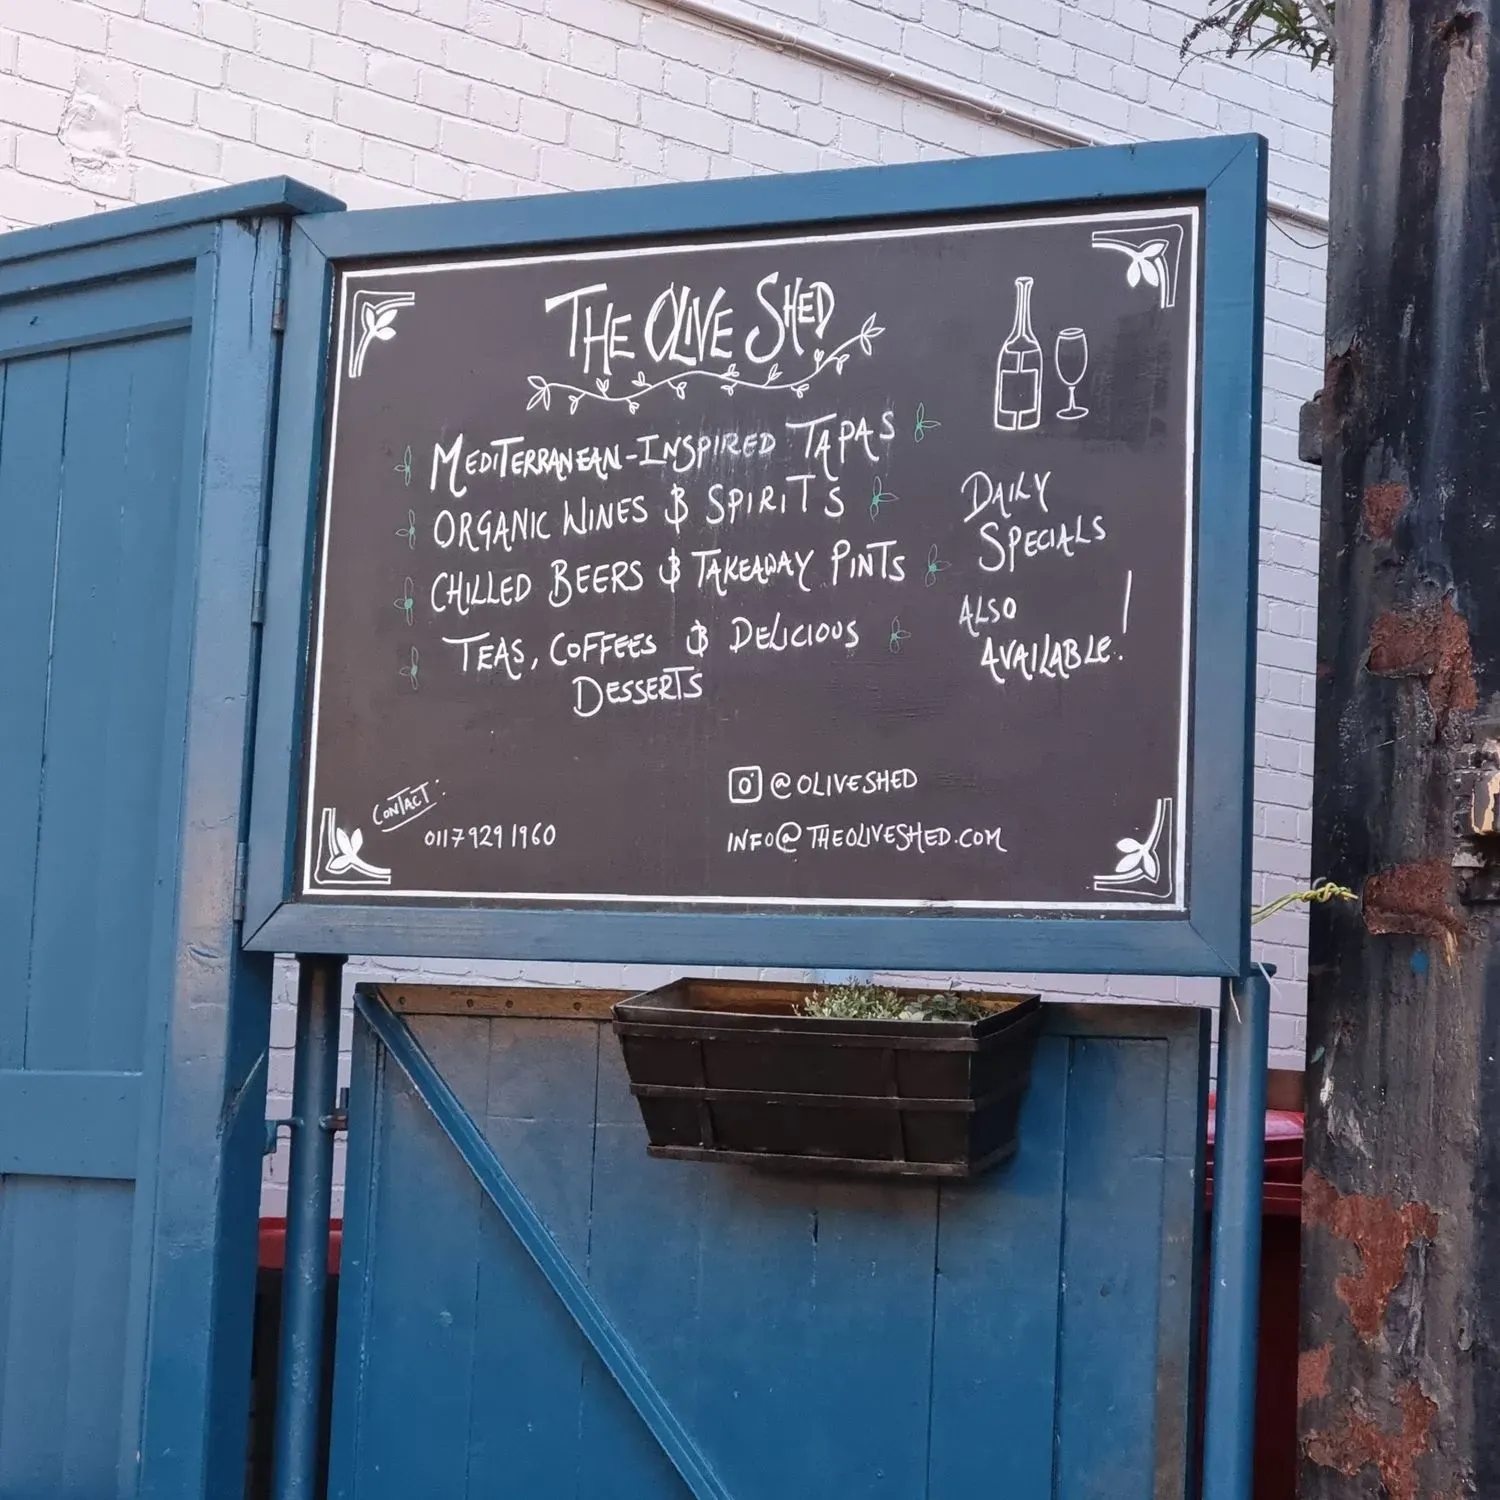 THE OLIVE SHED
MEDITERRANEAN-INSPIRED TAPAS
ORGANIC WINES & SPIRITS
CHILLED BEERS & TAKEAWAY PINTS
TEAS, COFFEES & DELICIOUS
DESSERTS
DAILY
SPECIALS
ALSO
AVAILABLE!
CONTACT:
0117 929 1960
@OLIVESHED
INFO@THEOLIVESHED.COM